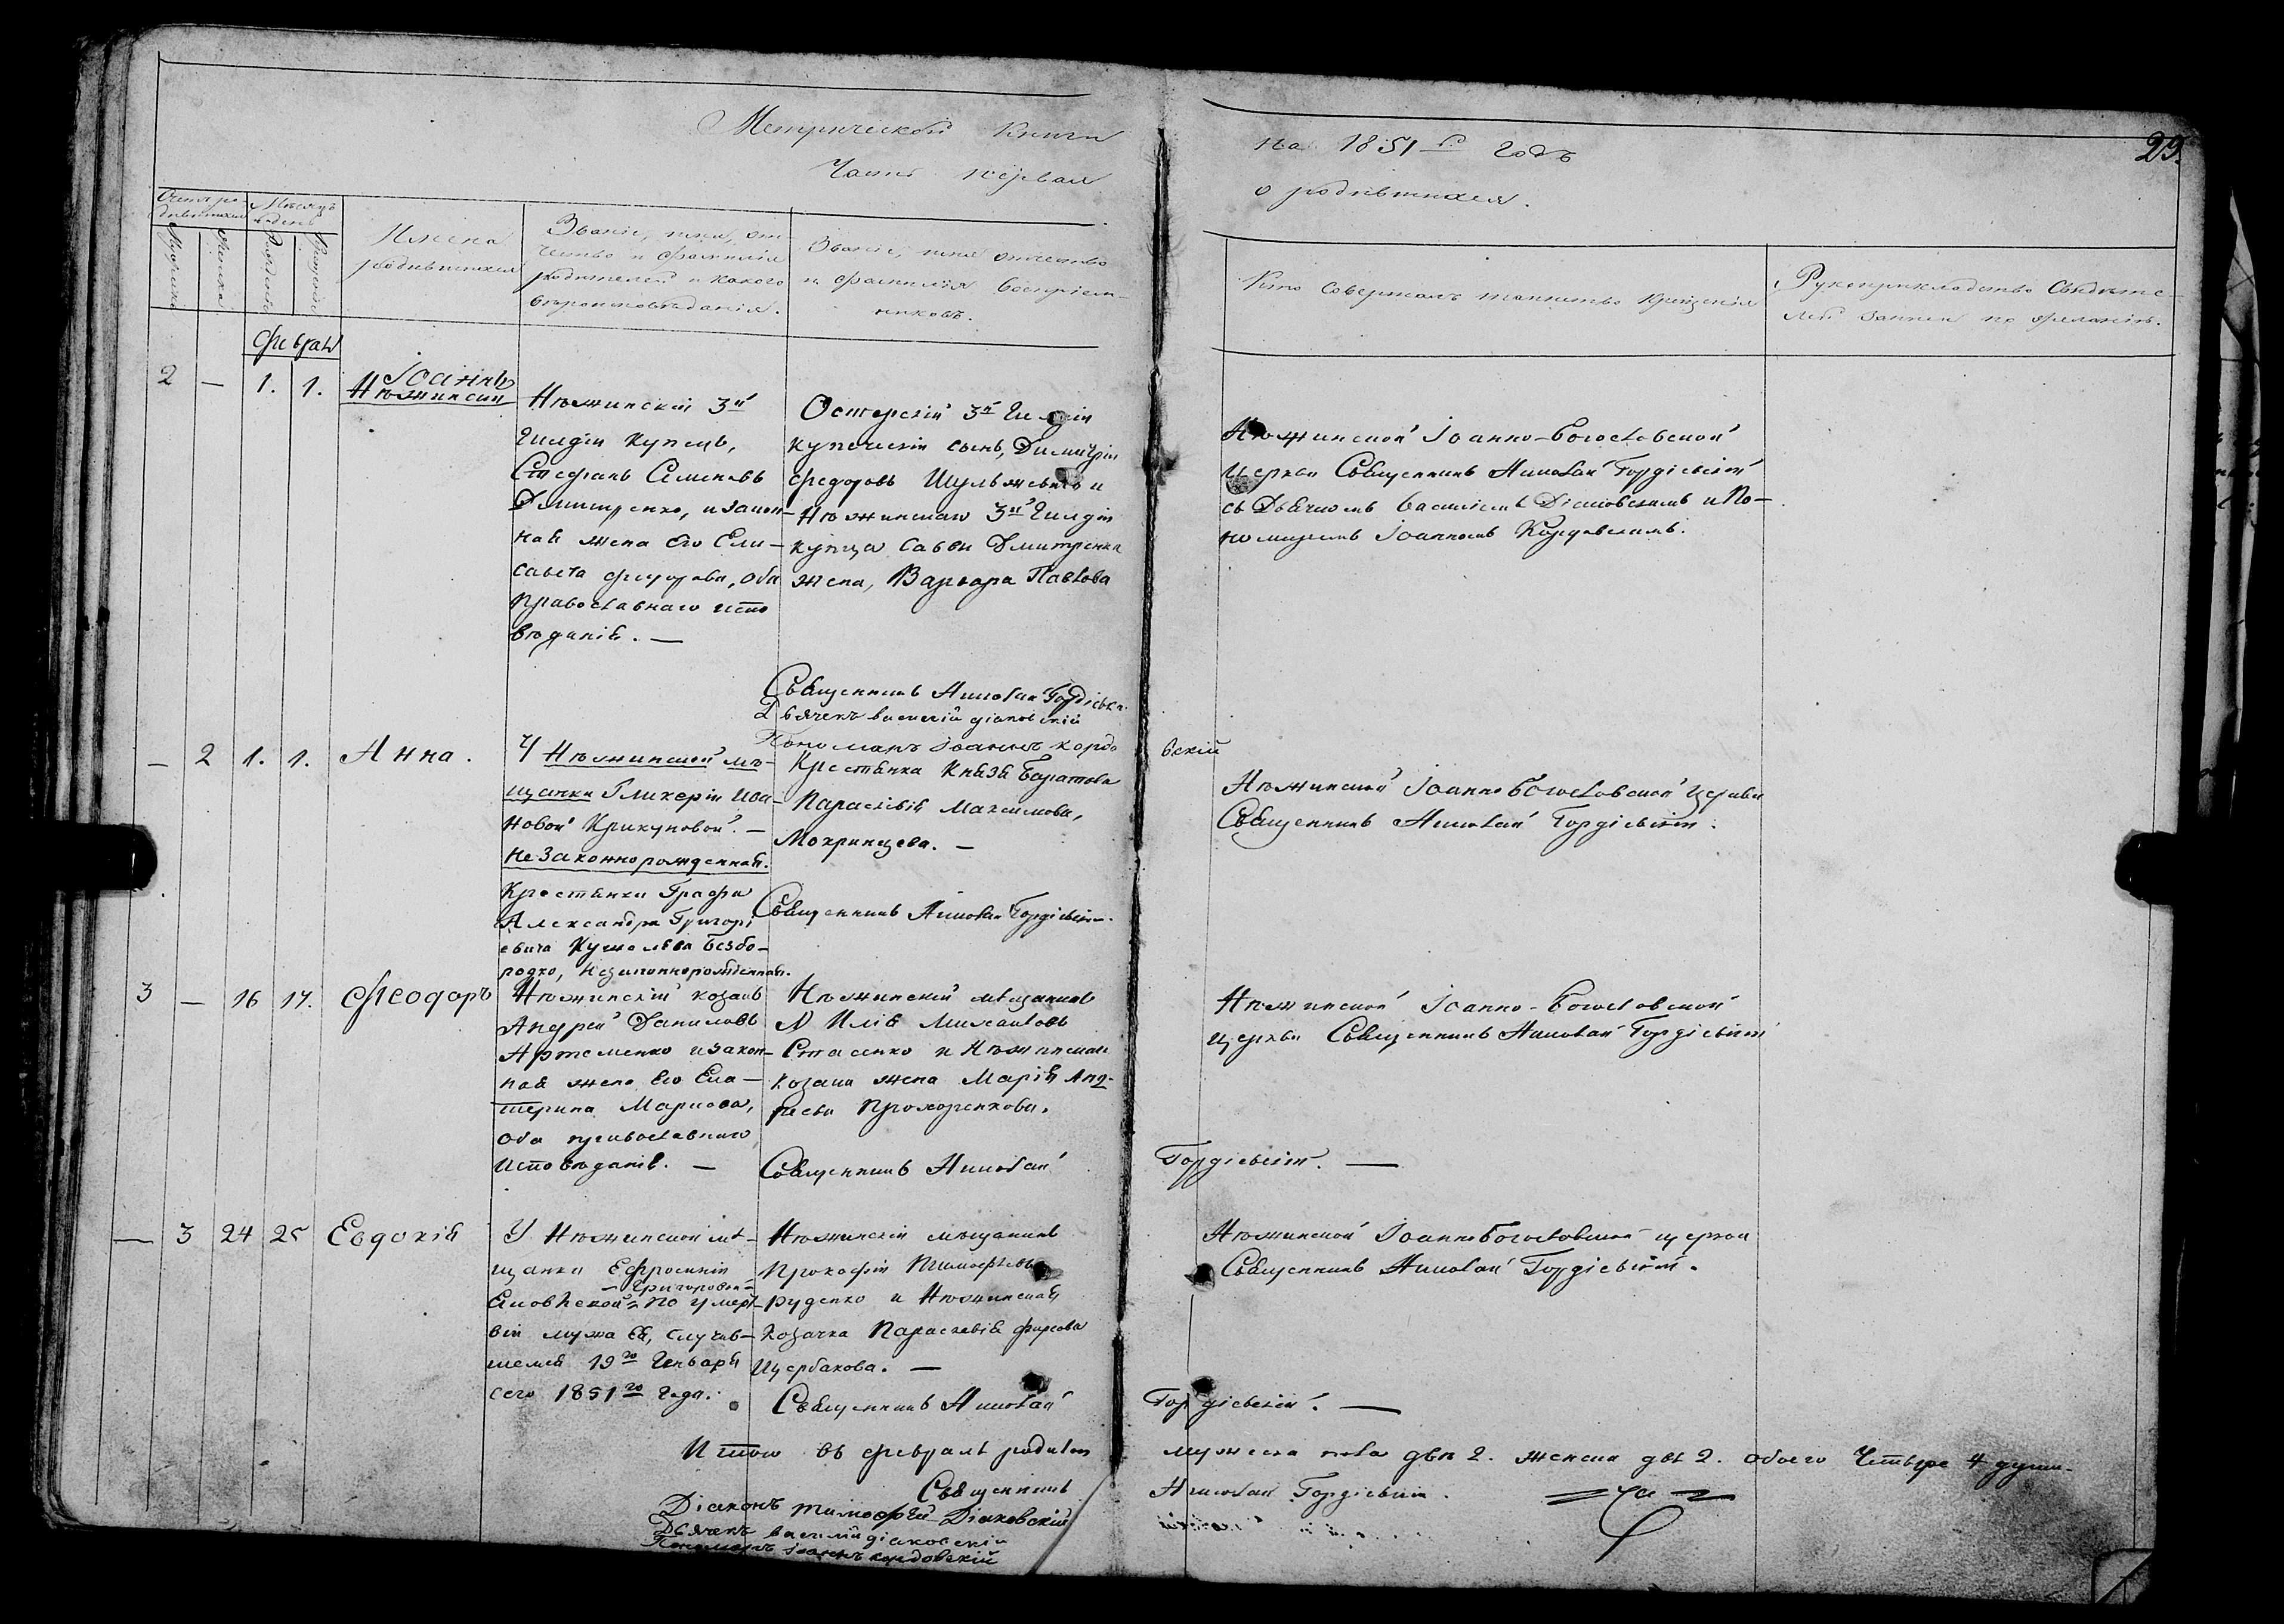 Метрической Книги на 1851й годъ
29.
Часть первая о родившихся.
Счетъ родившихся
Мѣсяцъ и день
Мужеска
Женска
Рожденія
Крещенія
Имена
родившихся
Званіе, имя, от-
чество и фамилія
родителей и какого
вѣроисповѣданія.
Званіе, имя отчество
и фамилія воспріем-
никовъ.
Кто совершалъ таинство крещенія
Рукоприкладство свидѣте-
лей записи по желанію.
Феврал
2 — 1. 1. Іоаннъ
Нѣжинскій 3й
Гилдіи купецъ,
Стефанъ Семеновъ
Дмитренко, и закон-
ная жена его Ели-
савета Федорова, оба
православнаго испо
вѣданія. —
Остерскій 3й Гилдіи
купеческій сынъ, Димитрій
Федоровъ Шульженко и
Нѣжинскаго 3й Гилдіи
купца Саввы Дмитренка
жена, Варвара Павлова
Нѣжинской Іоанно-Богословской
церкви Священникъ Николай Гордіевскій
съ Дьячкомъ Василіемъ Діаковскимъ и По-
номаремъ Іоанномъ Кордовскимъ.
Священникъ Николай Гордіевскі
Дьячекъ василій діаковскій
Пономарь іоаннъ кордовскій
— 2 1. 1. Анна.
У Нѣжинской мѣ-
щанки Гликеріи Ива-
новой Крикуновой. —
незаконнорожденная.
Крестянки Графа
Александра Григорі
евича Кушелева Безбо-
родко, незаконнорожденная.
Крестянка Князя Баратова
Параскевія Максимова,
Мокринцева. —
Нѣжинской Іоанно Богословской Церкви
Священникъ Николай Гордіевскій.
Священникъ Николай Гордіевскій.
3 — 16 17. Феодоръ
Нѣжинскій козакъ
Андрей Даниловъ
Артеменко и закон-
ная жена его Ека-
терина Маркова,
оба православнаго
исповѣданія. —
Нѣжинскій мѣщанинъ
Илія Михаиловъ
Стасенко и Нѣжинскаго
козака жена Марія Анд-
реева Прохоренкова.
Нѣжинской Іоанно-Богословской
церкви Священникъ Николай Гордіевскій
Священникъ Николай Гордіевскій. —
— 3 24 25 Евдокія
У Нѣжинской мѣ-
щанки Ефросиніи
Григоровой
Еновской по умерт-
віи мужа ея, случив-
шемся 19го Генваря
сего 1851го года.
Нѣжинскій мѣщанинъ
Прокофій Тимофѣевъ
Руденко и Нѣжинская
Козачка Параскевія Фирсова
Щербакова. —
Нѣжинской Іоанно Богословской церкви
Священникъ Николай Гордіевскій.
Священникъ Николай Гордіевскій. —
Итого въ феврале родилось мужеска пола два 2. женска двѣ 2. обоего Четыре 4 души.
Священникъ Николай Гордіевскій.
Діаконъ Тимофей Діаковскій
Дьячекъ василій діаковскій
Пономарь іоаннъ кордовскій